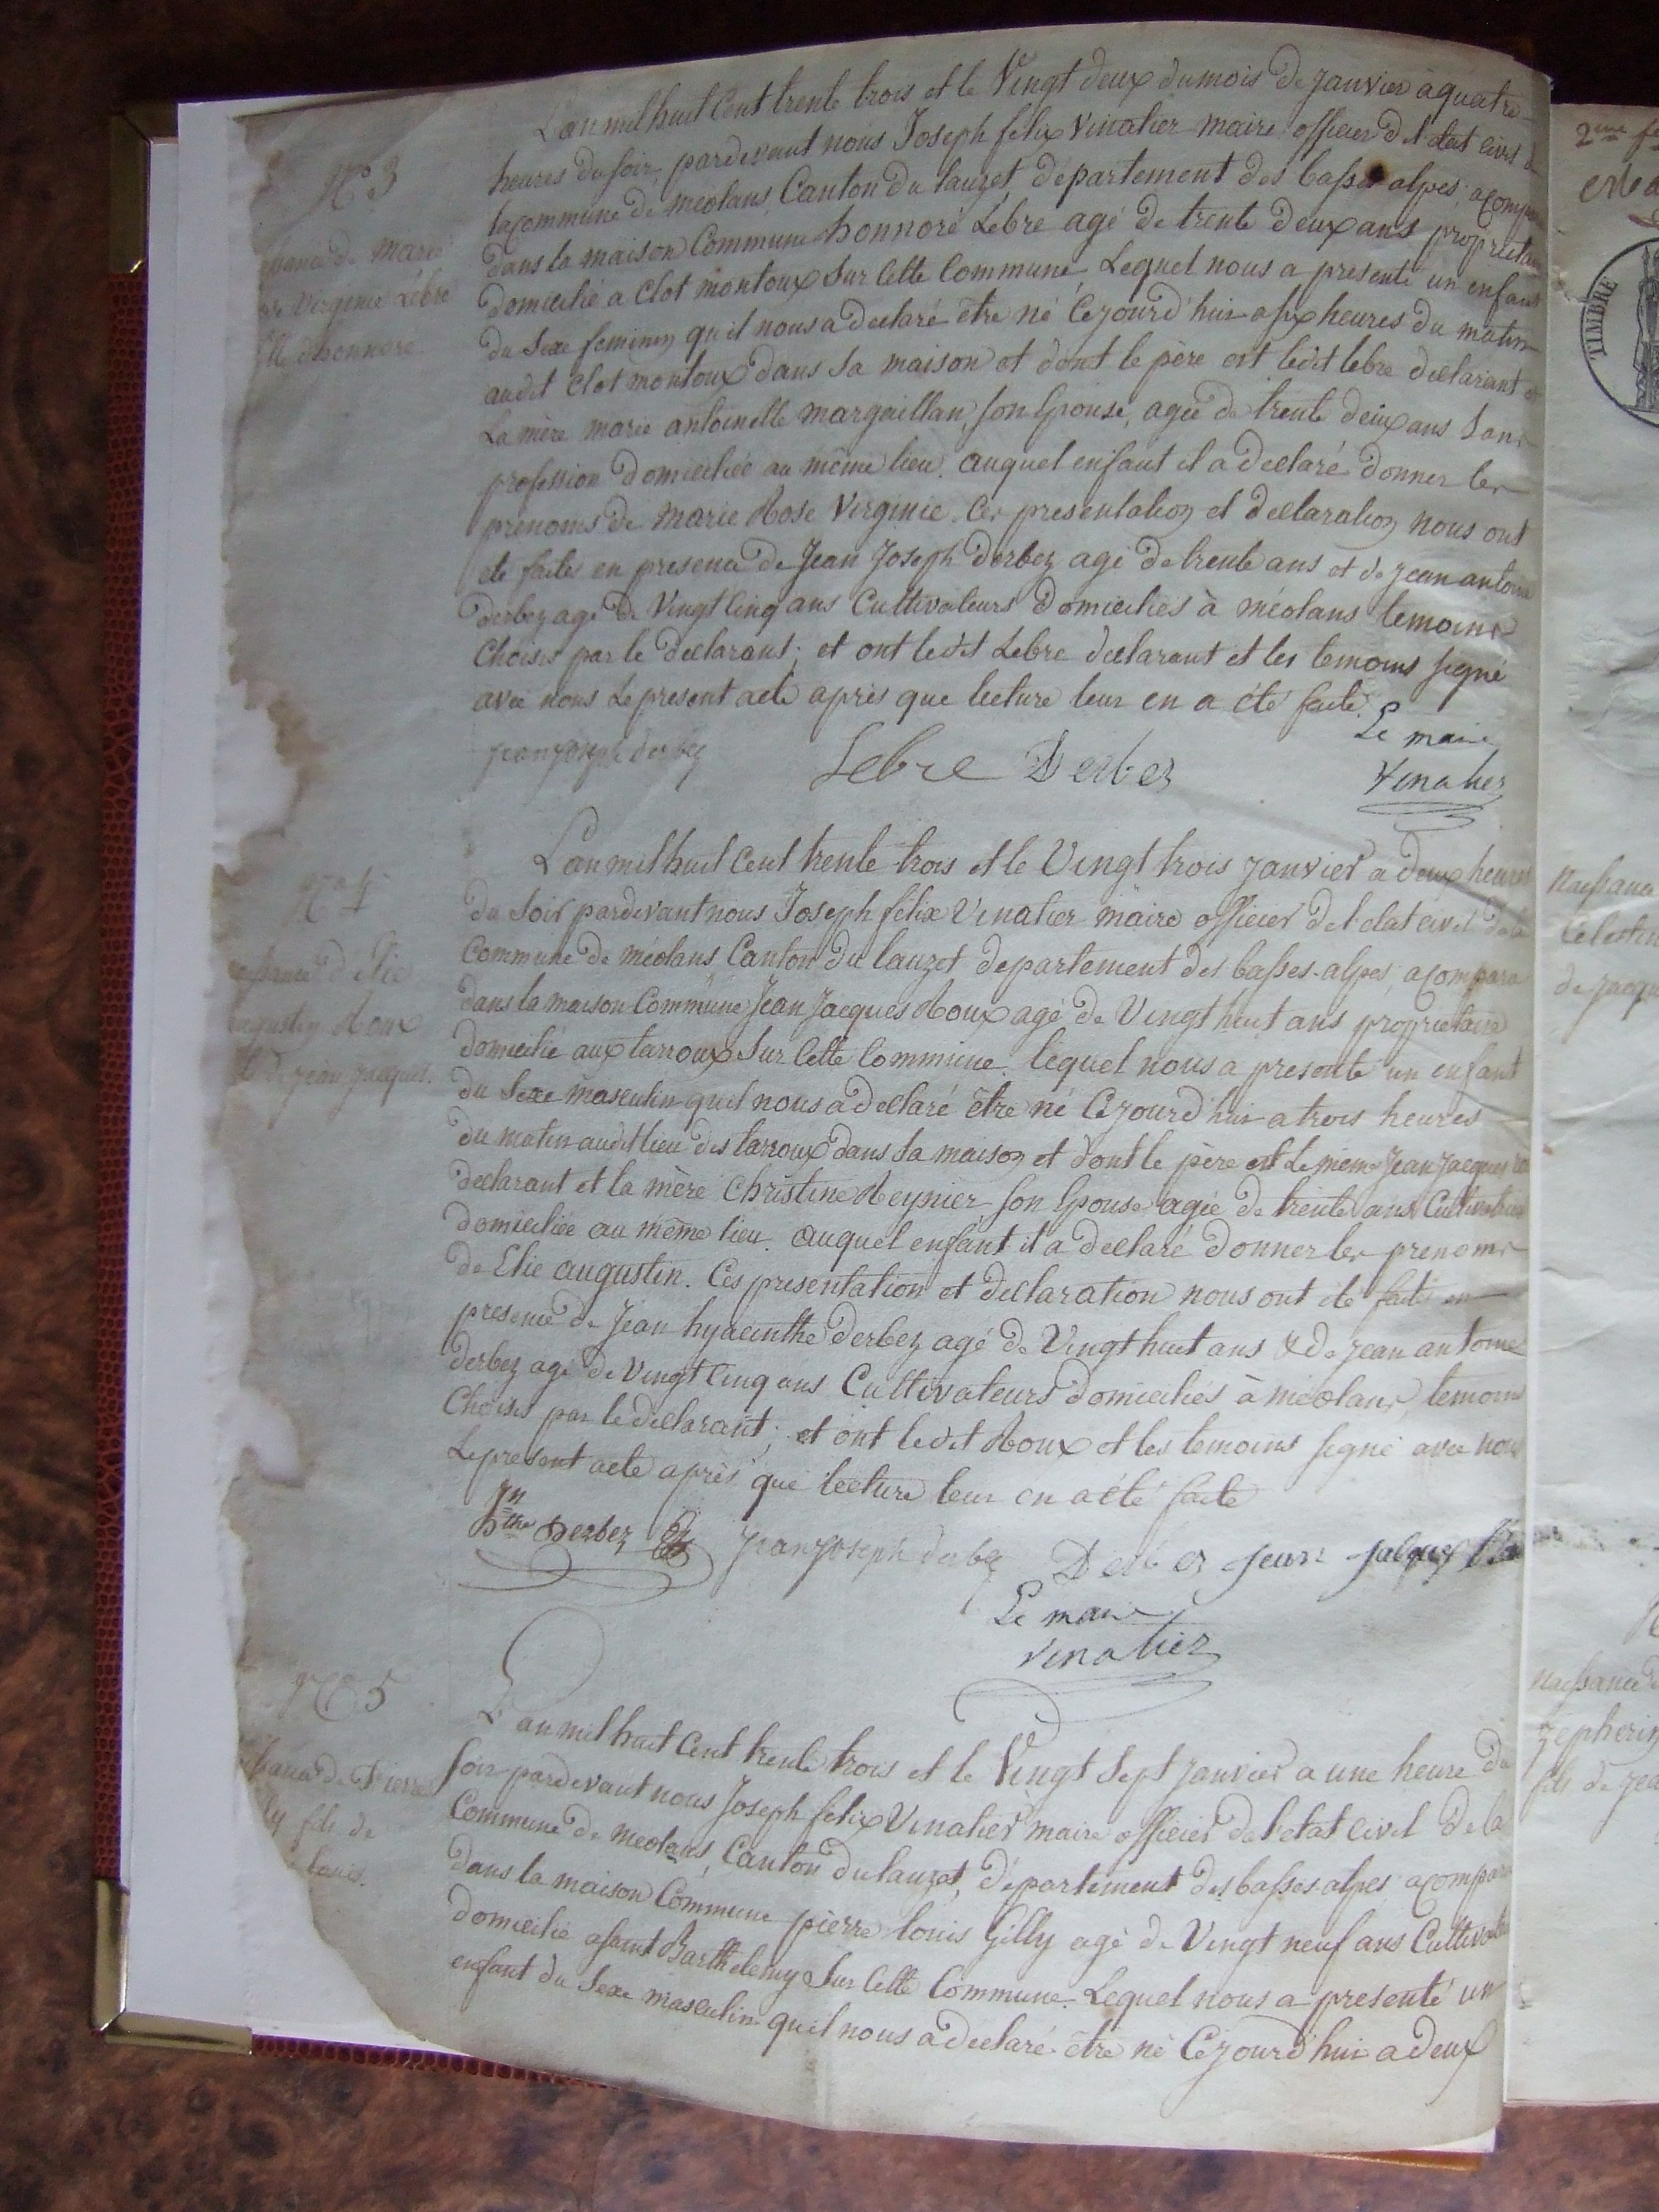 N.o 3
L'an mil huit cent trente trois et le Vingt deux du mois de janvier à quatre
heures du soir, pardevant nous Joseph felix Vinatier maire officier d l'état civil de
la commune de méolans, Canton du lauzet, département des basses alpes, a comparu
dans la maison Commune honnoré Lèbre agé de trente deux ans propriétaire
domicilié a Clot montoux sur cette Commune, Lequel nous a presenté un enfant
du sexe feminin qu'il nous a declaré être né Cejourd'hui a six heures du matin
audit Clot montoux dans sa maison et dont le père est ledit lebre déclarant et
La mère marie antoinette margaillan, son Epouse, agée de trente deux ans Sans
profession domiciliée au même lieu. auquel enfant il a declaré donner les
prenoms de marie Rose Virginie. Ces presentation et declaration nous ont
été faites en presence de Jean Joseph derbez agé de trente ans et de jean antoine
derbez agé de Vingt Cinq ans Cultivateurs domiciliés à méolans temoins
Choisis par le declarant; et ont ledit Lebre declarant et les temoins signé
avec nous Le present acte après que lecture leur en a été faite.
marie
Virginie Lèbre
d'honnoré
jean joseph derbez Lebre Derbez
Le maire
Vinatier
N.o 4
L'an mil huit Cent trente trois et le Vingt trois janvier a deux heures
du soir pardevant nous Joseph felix Vinatier maire officier de l'etat civil de la
Commune de méolans Canton du lauzet departement des basses-alpes, a comparu
dans la maison Commune Jean Jacques Roux agé de Vingt huit ans propriétaire
domicilié aux tarroux sur Cette Commune. lequel nous a presenté un enfant
du Sexe masculin qu'il nous a declaré être né Cejourd'hui a trois heures
du matin audit lieu des tarroux dans sa maison et dont le père est Le meme Jean Jacques
declarant et la mère Christine Reynier son Epouse agée de trente ans Cultivatrice
domiciliée au même lieu. auquel enfant il a declaré donner les prenoms
de Elie augustin. Ces presentation et declaration nous ont été faites en
presence de Jean hyacinthe derbez agé de Vingt huit ans & de jean antoine
derbez agé de Vingt Cinq ans Cultivateurs domiciliés à méolans, temoins
Choisis par le declarant; et ont ledit Roux et les temoins signé avec nous
Le present acte après que lecture leur en a été faite
d'Elie
augustin Roux
jean jacques.
Jn hthe Derbez jean joseph derbez Derbez jean jacques
Le maire
Vinatier
N.o 5
L'an mil huit Cent trente trois et le Vingt Sept janvier a une heure du
soir pardevant nous Joseph felix Vinatier maire officier de l'etat civil de la
Commune de meolans, Canton du lauzet, département des basses-alpes a comparu
dans la maison Commune pierre louis Gilly agé de Vingt neuf ans Cultivateur
domicilié a saint Barthelemy sur Cette Commune. Lequel nous a presenté un
enfant du Sexe masculin qu'il nous a declaré être né Cejourd'hui a deux
de Pierre
fils de
louis.
2me
TIMBRE
Naissance
Celestin
de jacques
Naissance
Zepherin
fils de jea